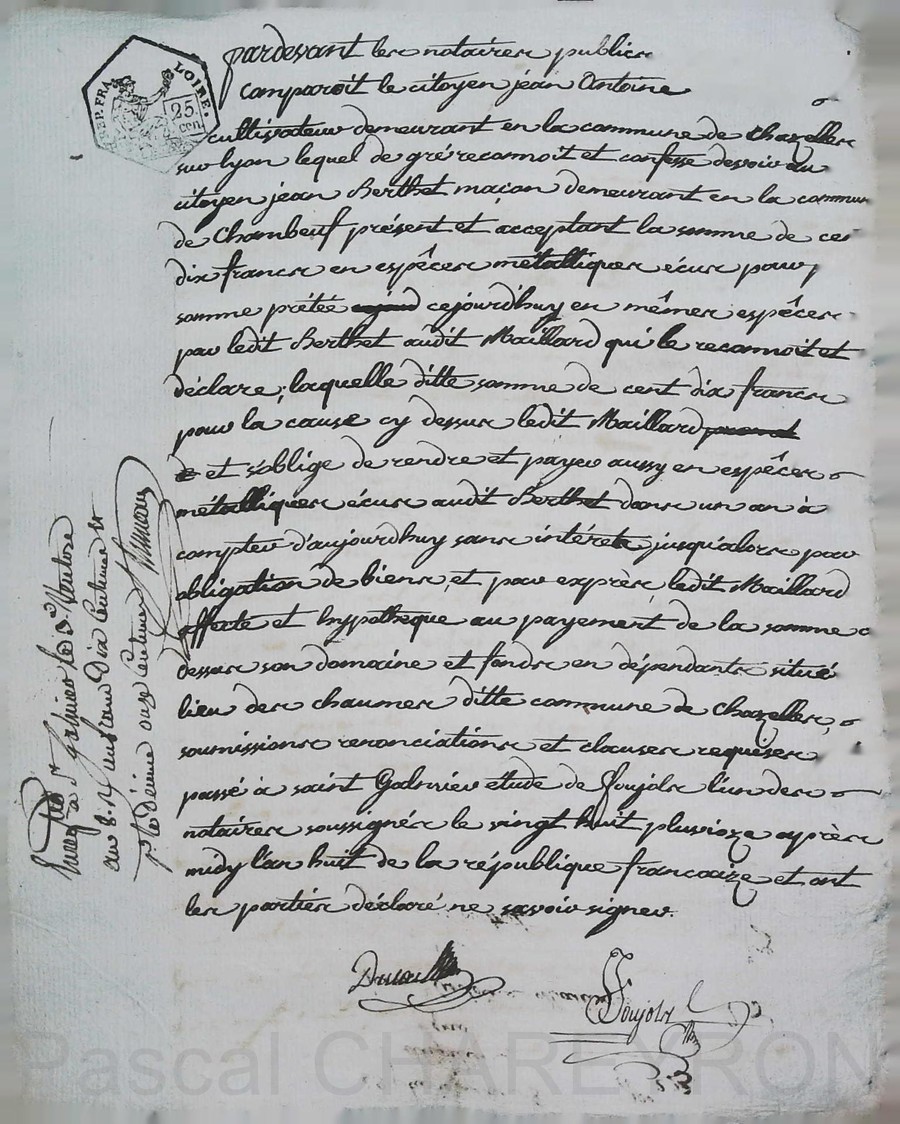 REP. FRA.
LOIRE.
25
cen
pardevant les notaires publics
comparoît le citoyen jean Antoine
cultivateur demeurant en la commune de Chazelles
sur lyon lequel de gré reconnoit et confesse devoir au
citoyen jean Berthet maçon demeurant en la commun
de Chambeuf présent et acceptant la somme de cen
dix francs en espêces métalliques écus pour
somme prétée cejourdhuy en mêmes espêces
par ledit Berthet audit Maillard qui le reconnoit et
déclare; laquelle ditte somme de cent dix francs
pour la cause cy dessus ledit Maillard
et s'oblige de rendre et payer aussy en espêces
métalliques écus audit Berthet dans un an à
compter d'aujourdhuy sans intérets jusqu'alors par
obligation de biens et par exprès ledit Maillard
affecte et hypothèque au payement de la somme c
dessus son domaine et fonds en dépendants situé
lieu des chaumes ditte commune de Chazelles,
soumissions renonciations et clauses requises
passé à saint Galmier étude de Soujols l'un des
notaires soussignés le vingt huit pluvioze après
midy l'an huit de la république francaize et ont
les parties déclaré ne savoir signer.
Soujols
à St Galmier le 3e Ventose
an 8. Dix Centimes
onze Centimes
Pascal CHAREYRON